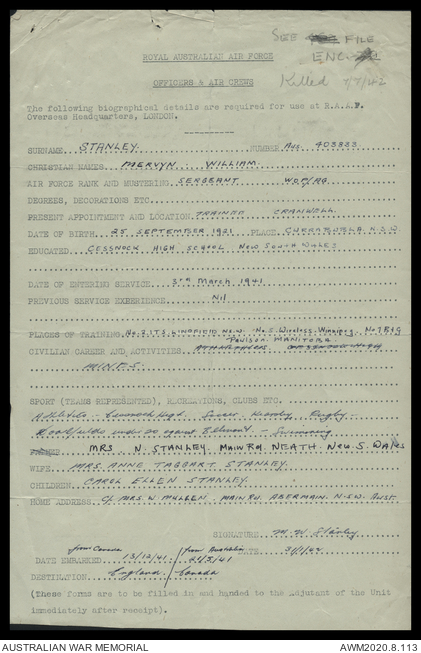 SEE FILE
ENC.
Killed 7/7/42
ROYAL AUSTRALIAN AIR FORCE
OFFICERS & AIR CREWS
The following biographical details are required for use at R.A.A.F.
Overseas Headquarters, LONDON.
SURNAME STANLEY. NUMBER Aus 403833
CHRISTIAN NAMES MERVYN : WILLIAM
AIR FORCE RANK AND MUSTERING SERGEANT WOP/AG.
DEGREES, DECORATIONS ETC
PRESENT APPOINTMENT AND LOCATION TRAINED CRANWELL
DATE OF BIRTH 25 SEPTEMBER 1921 PLACE N.S.W
EDUCATED CESSNOCK HIGH SCHOOL NEW SOUTH WALES
DATE OF ENTERING SERVICE 3rd March 1941
PREVIOUS SERVICE EXPERIENCE Nil
PLACES OF TRAINING No.2 I.T.S LINDFIELD N.S.W. No.5 Wireless, Winnipeg, No 7 B&G
Paulson MANITOBA
CIVILIAN CAREER AND ACTIVITIES
MINES.
SPORT (TEAMS REPRESENTED), RECREATIONS, CLUBS ETC.
Athletics - High. Soccer Rugby
- Swimming
MRS. N. STANLEY. MAIN RD. NEATH. NEW S. WALES
WIFE MRS. ANNE TAGGART STANLEY.
CHILDREN CAROL ELLEN STANLEY.
HOME ADDRESS C/ MRS. W. MULLEN. MAIN RD. ABERMAIN. N.S.W. AUST.
SIGNATURE M. W. Stanley
from Canada from Australia DATE
DATE EMBARKED 13/12/41
DESTINATION England Canada
(These forms are to be filled in and handed to the Adjutant of the Unit
immediately after receipt).
AUSTRALIAN WAR MEMORIAL AWM2020.8.113